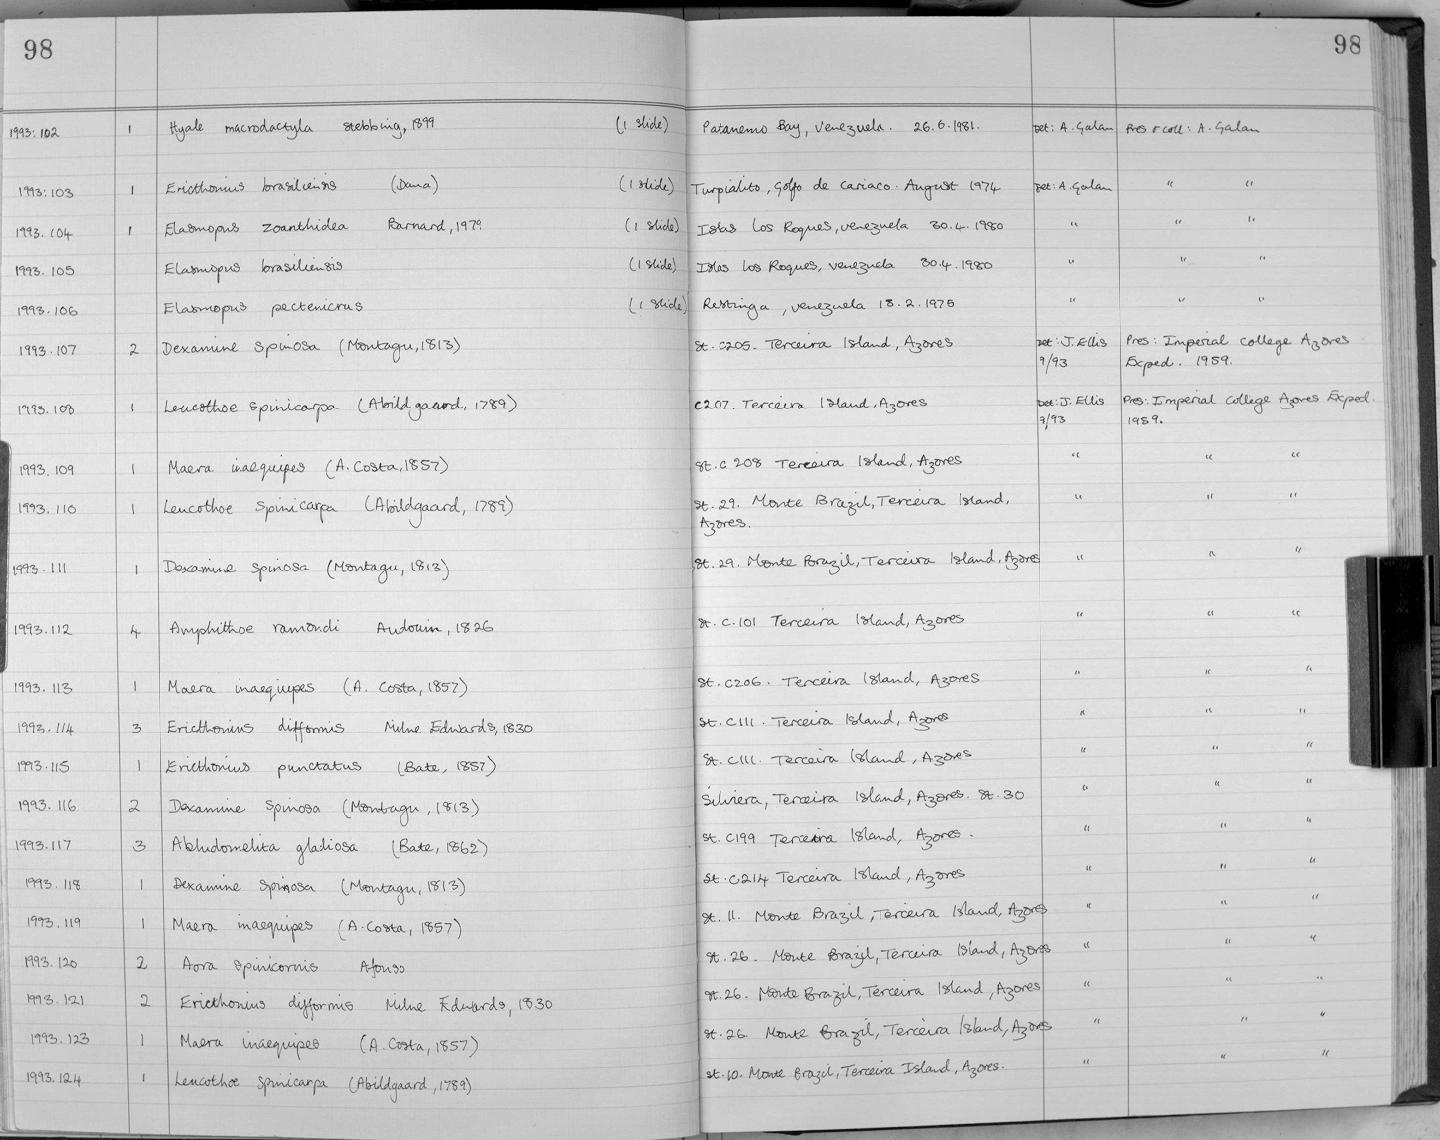 98 98
1993:102 1 Hyale macrodactyla Stebbing, 1899 (1 slide) Patanemo Bay, Venezuela. 26.6.1981. Det: A. Galan Pres & Coll: A. Galan
1993:103 1 Ericthonius brasiliensis (Dana) (1 slide) Turpialito, Golfo de Cariaco. August 1974 Det: A. Galan " "
1993.104 1 Elasmopus zoanthidea Barnard, 1979 (1 slide) Islas Los Roques, Venezuela 30.4.1980 " " "
1993.105 Elasmopus brasiliensis (1 slide) Islas Los Roques, Venezuela 30.4.1980 " " "
1993.106 Elasmopus pectenicrus (1 slide) Restinga, Venezuela 18.2.1975 " " "
1993.107 2 Dexamine spinosa (Montagu, 1813) St. C205. Terceira Island, Azores Det: J. Ellis Pres: Imperial College Azores
9/93 Exped. 1959.
1993.108 1 Leucothoe spinicarpa (Abildgaard, 1789) C207. Terceira Island, Azores Det: J. Ellis Pres: Imperial College Azores Exped.
9/93 1959.
1993.109 1 Maera inaequipes (A. Costa, 1857) St. C 208 Terceira Island, Azores " " "
1993.110 1 Leucothoe spinicarpa (Abildgaard, 1789) St. 29. Monte Brazil, Terceira Island, " " "
Azores.
1993.111 1 Dexamine spinosa (Montagu, 1813) St. 29. Monte Brazil, Terceira Island, Azores " " "
1993.112 4 Amphithoe ramondi Audouin, 1826 St. C.101 Terceira Island, Azores " " "
1993.113 1 Maera inaequipes (A. Costa, 1857) St. C206. Terceira Island, Azores " " "
1993.114 3 Ericthonius difformis Milne Edwards, 1830 St. C111. Terceira Island, Azores " " "
1993.115 1 Ericthonius punctatus (Bate, 1857) St. C111. Terceira Island, Azores " " "
1993.116 2 Dexamine spinosa (Montagu, 1813) Silviera, Terceira Island, Azores. St. 30 " " "
1993.117 3 Abludomelita gladiosa (Bate, 1862) St. C199 Terceira Island, Azores. " " "
1993.118 1 Dexamine spinosa (Montagu, 1813) St. C214 Terceira Island, Azores " " "
1993.119 1 Maera inaequipes (A. Costa, 1857) St. 11. Monte Brazil, Terceira Island, Azores " " "
1993.120 2 Aora spinicornis Afonso St. 26. Monte Brazil, Terceira Island, Azores " " "
1993.121 2 Ericthonius difformis Milne Edwards, 1830 St. 26. Monte Brazil, Terceira Island, Azores " " "
1993.123 1 Maera inaequipes (A. Costa, 1857) St. 26. Monte Brazil, Terceira Island, Azores " " "
1993.124 1 Leucothoe spinicarpa (Abildgaard, 1789) St. 10. Monte Brazil, Terceira Island, Azores. " " "